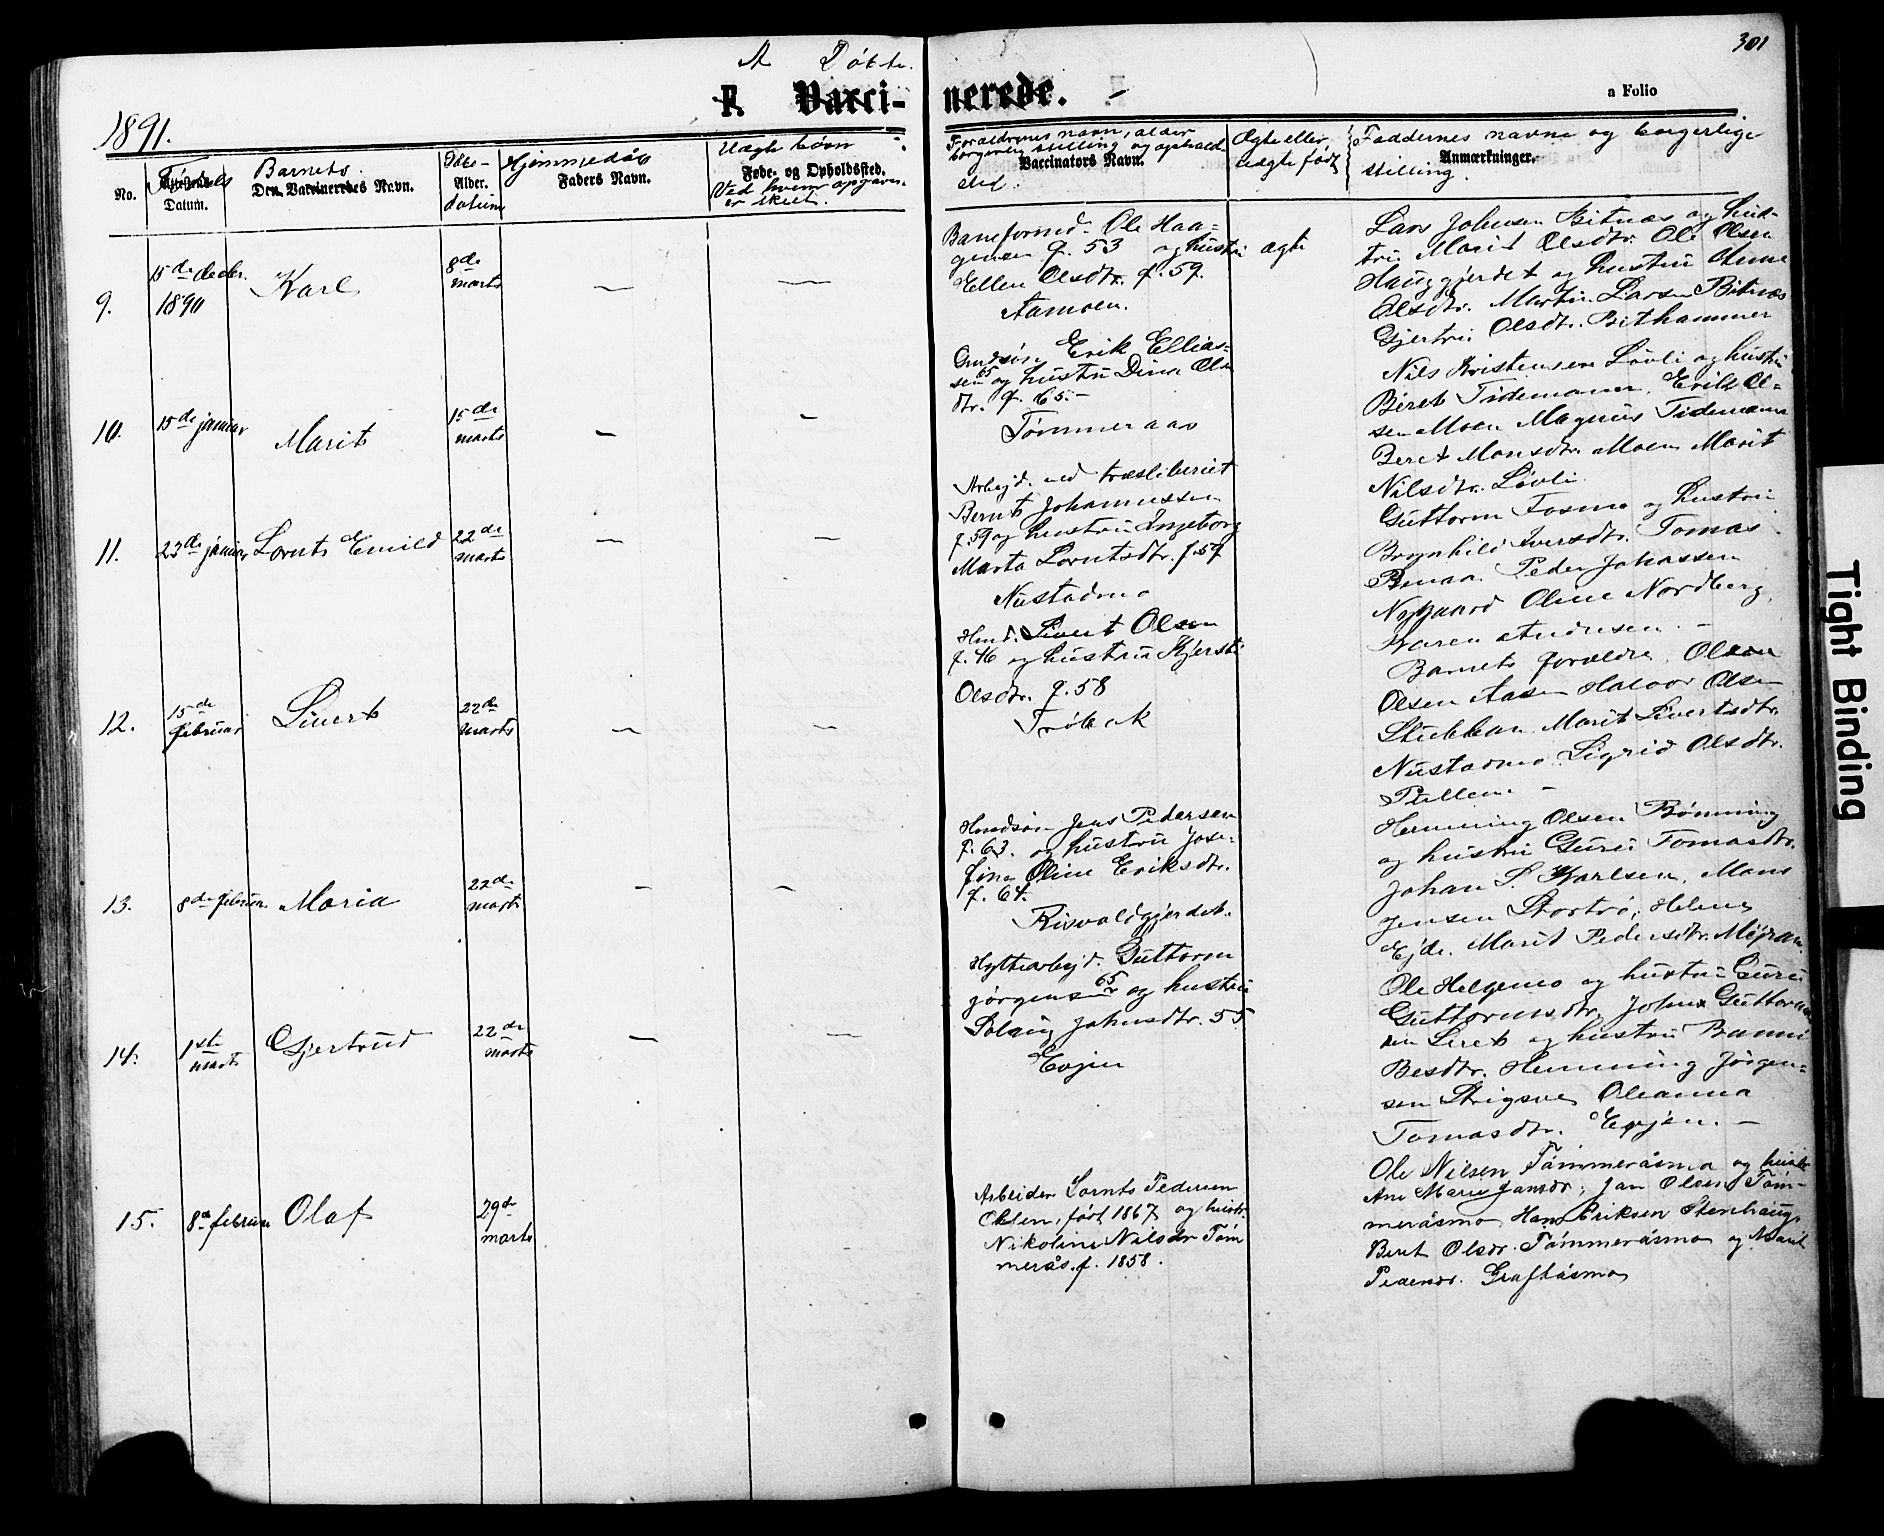 301
A Døbte.
F. Vacci-
nerede.
a Folio
1891.
No.
Fødsels
Datum.
Barnets
Den Vaccineredes Navn.
Alder.
datum
Hjemmedøb
Faders Navn.
Uægte børn
Føde- og Opholdssted.
Ved hvem opgaven
er skeet.
Forældrenes navn, alder
borgerlig stilling og opholds
Vaccinators Navn.
sted.
Ægte eller
uægte født
Faddernes navne og borgerlige
Anmærkninger.
stilling.
9.
15de decbr.
1890
Karl
8de
marts
—
—
Baneformd. Ole Haa-
gensen f. 53 og hustru
Ellen Olsdtr. f. 59.
Aamoen.
ægte
Lars Johnsen Bitnæs og hus-
tru Marit Olsdtr. Ole Olsen
Hauggjerdet og hustru Anne
Olsdtr. Martin Larsen Bitnæs
Gjertru Olsdtr. Bithammer
10.
15de januar
Marit
15de
marts
—
—
Gmdsøn Erik Ellias-
sen 65 og hustru Dina Ols
dtr. f. 65.-
Tømmeraas
Nils Kristensen Løvli og hustru
Beret Tidemann. Erik Ol-
sen Moen Magnus Tidemann
Beret Monsdtr. Moen Marit
Nilsdtr. Løvli.
11.
23de januar
Lornts Emild
22de
marts
—
—
Arbejd. ved træsliberiet
Bernt Johannessen
f. 59 og hustru Ingeborg
Marta Lorntsdtr. f. 59
Nustadmo
Guttorm Fosmo og hustru
Brynhild Iversdtr. Tomas
Renaa. Peder Johassen
Nygaard Oline Nordberg,
Karen Andresen. -
12.
15de
februar
Sivert
22de
marts
—
—
Hmd. Sivert Olsen
f. 46 og hustru Kjersti
Olsdtr. f. 58
Trøbak
Barnets forældre, Olsen
Olsen Aasen Halvor Olsen
Stubban Marit Sivertsdtr.
Nustadmo Sigrid Olsdtr.
13.
8de februar
Maria
22de
marts
—
—
Hmdsøn Jens Pedersen
f. 63. og hustru Jose-
fine Oline Eriksdtr.
f. 64.
Risvaldgjerdet.
Hemming Olsen Rønning
og hustru Guru Tomasdtr.
Johan S. Karlsen, Mons
Jensen Stortrø, Helene
Ejde. Marit Pedersdtr.
14.
1ste
marts
Gjertrud
22de
marts
—
—
Hyttearbejd. Guttorm
Jørgensen 65 og hustru
Solaug Johnsdtr. 55
Evjen
Ole Helgemo og hustru Guru
Guttormsdtr. John Guttorm
sen Seret og hustru
Besdtr. Hemming Jørgen-
sen Oleanna
Tomasdtr. Evjen. -
15.
8de februar
Olaf
29de
marts
Arbeider Lornts Pedersen
Olsen, født 1867 og hustr.
Nikoline Nilsdtr Tøm
merås. f. 1858.
Ole Nilsen Tømmeråsmo og hustr
Ane Marie Jansdr, Jan Olsen Tøm-
meråsmo, Hans Eriksen Stenhaug,
Beret Olsdr. Tømmeråsmo og Marit
Pedersdr. Graftåsmo
Tight Binding